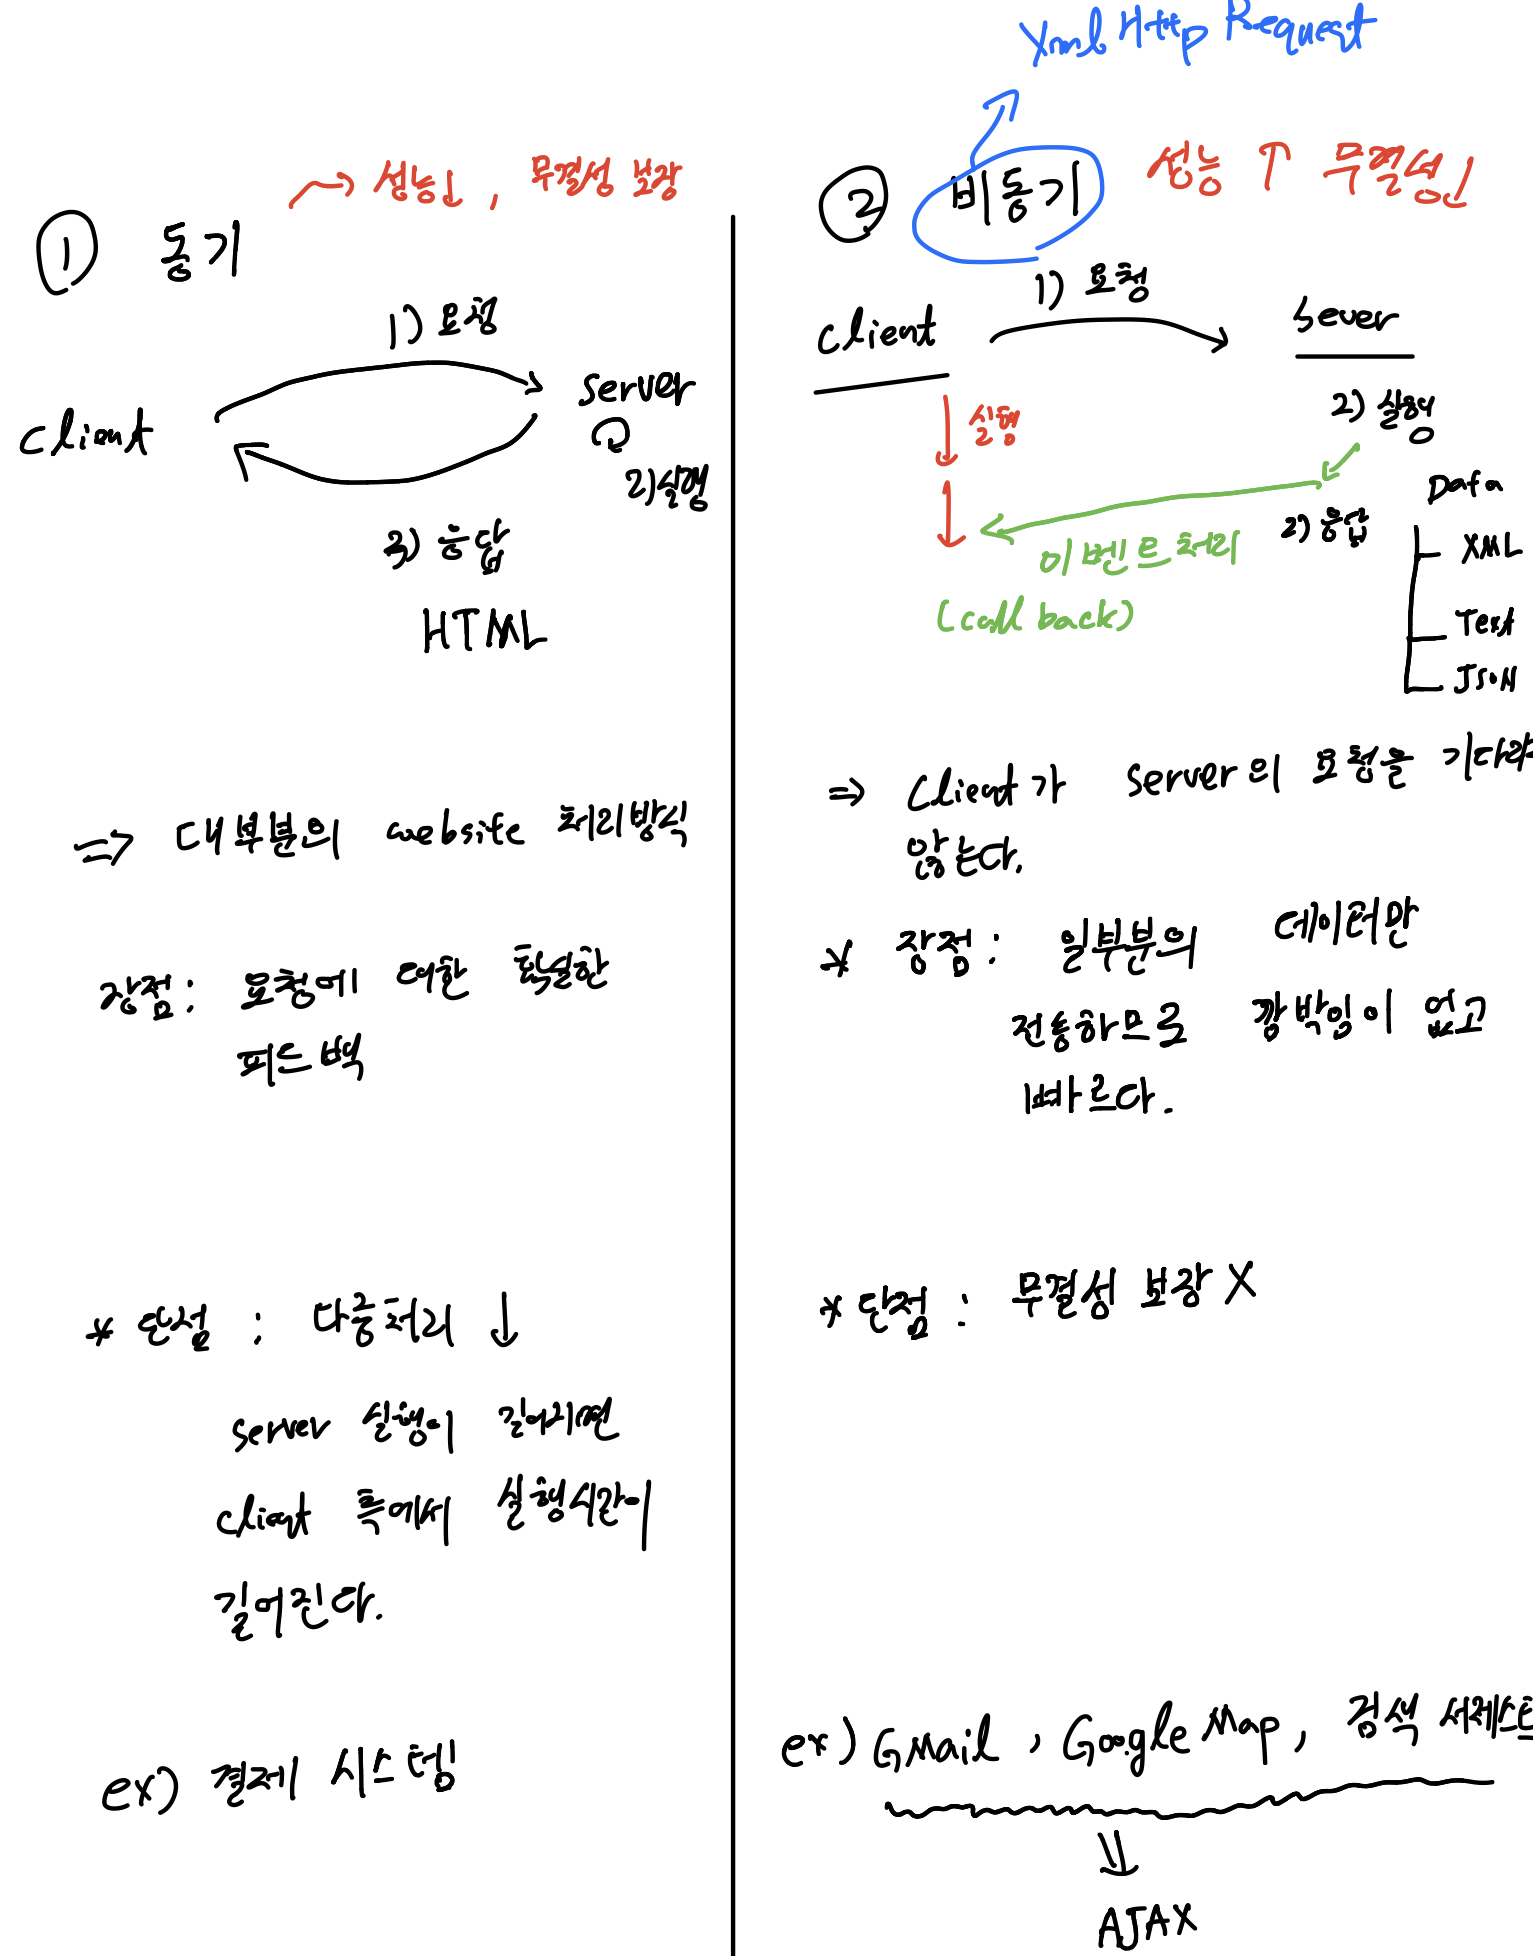 ① 동기
→ 성능↓, 무결성 보장
1) 요청
client
server
2) 실행
3) 응답
HTML
⇒ 대부분의 website 처리방식
장점: 요청에 대한 확실한
피드백
* 단점 : 다중처리 ↓
server 실행이 길어지면
client 측에서 실행시간이
길어진다.
ex) 결제 시스템
Xml Http Request
② 비동기
성능 ↑ 무결성↓
1) 요청
client
Sever
실행
2) 실행
2) 응답
이벤트 처리
(call back)
Data
XML
Text
JSON
⇒ client가 server의 요청을 기다리
않는다.
* 장점: 일부분의 데이터만
전송하므로 깜박임이 없고
빠르다.
* 단점 : 무결성 보장 X
ex) GMail, Google Map, 검색 서제스트
AJAX